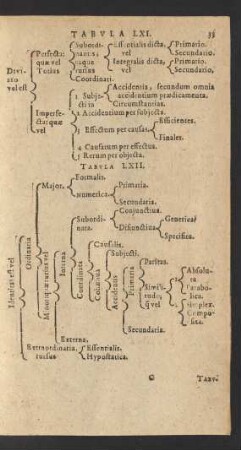 TABVLA LXI. 33
Divisio vel est
Perfecta: quæ vel
Totius
Subordinata: iisque totius
Essentialis dicta, vel
Primario.
Secundario.
Integralis dicta,
Primario.
Secundario.
Coordinati.
Imperfecta: quæ vel
1 Subjectiva
Accidentia, secundum omnia
accidentium prædicamenta.
Circumstantias.
2 Accidentium per subjecta.
3 Effectum per causas
Efficientes.
Finales.
4 Causarum per effectus.
5 Rerum per objecta.
TABVLA LXII.
Identitas est vel
Ordinaria
Major,
Formalis.
Numerica.
Primaria.
Secundaria.
Minor: quæ rursus vel
Interna
Subordinata.
Conjunctiva.
Disjunctiva
Generica
Specifica.
Coordinata
Causalis.
Collateralis
Subjecti.
Accidentis
Primaria
Paritas.
Similitudo, q; vel
Absoluta
Parabolica.
Simplex.
Composita.
Secundaria.
Externa.
Extraordinaria. rursus
Essentialis.
Hypostatica.
C TABV-